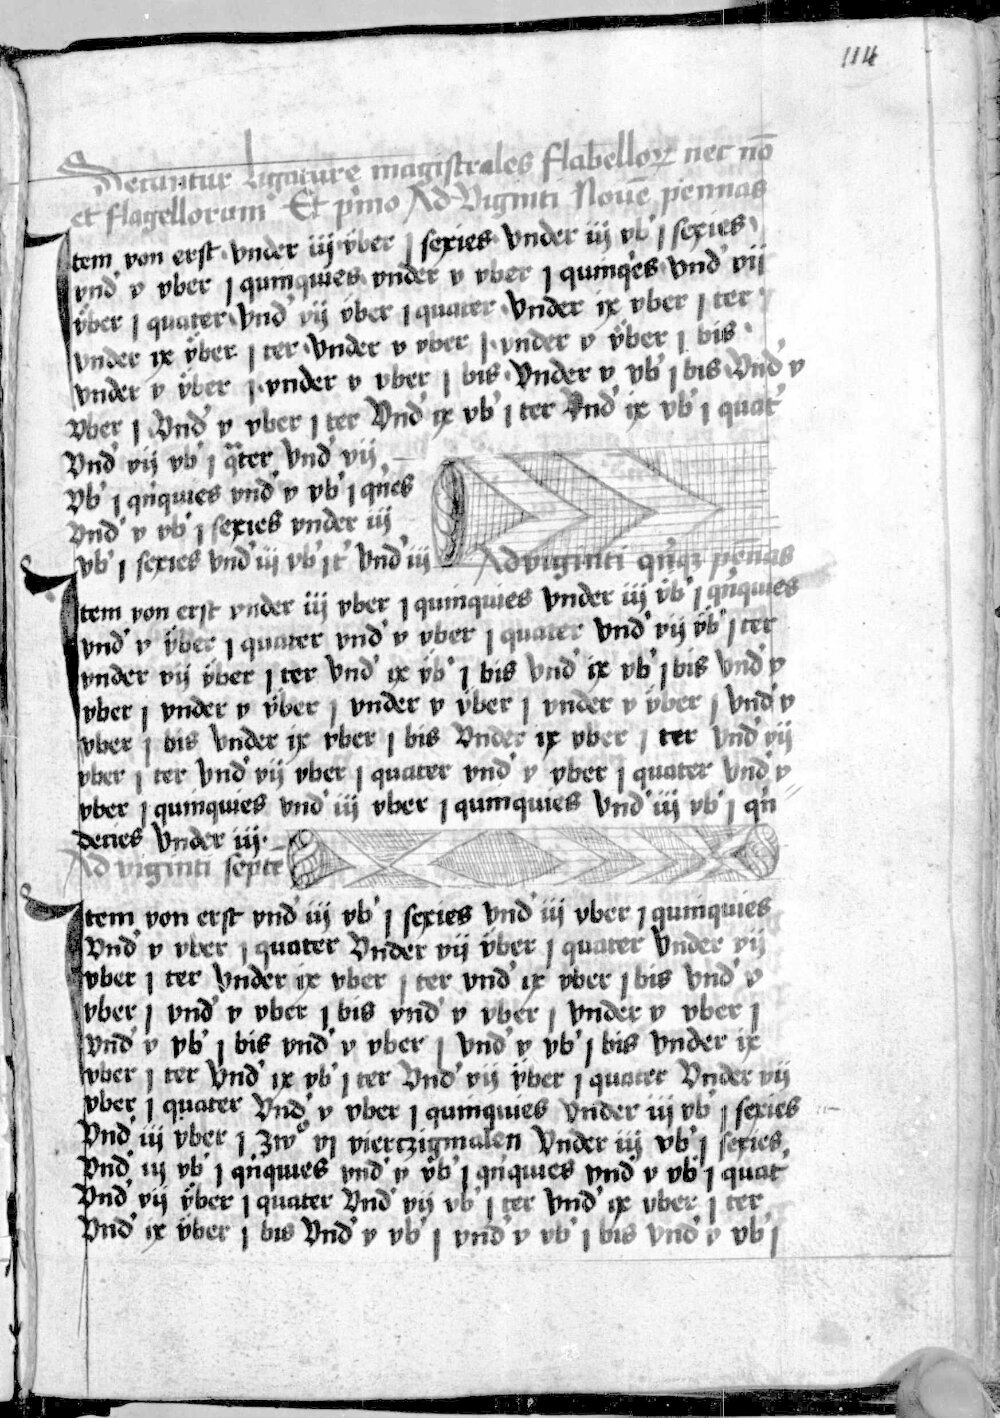 114
Secuntur Ligature magistrales flabelloꝝ nec nō
et flagellorum Et pͥmo Ad Viginti Nouē pennas
Item von erst vnder iij vber j sexies vnder iij vb' j sexies
vnd' v vber j quinquies vnder v vber j quinqͥes vnd' vij
v̈ber j quater vnd' vij v̈ber j quater vnder ix vber j ter
vnder ix v̈ber j ter vnder v vber j vnder v v̈ber j bis
vnder v v̈ber j vnder v vber j bis vnder v vb' j bis vnd' v
vber j vnd' v vber j ter vnd' ix vb' j ter vnd' ix vb' j quat'
vnd' vij vb' j qͣter vnd' vij
vb' j qn̄quies vnd' v vb' j qn̄es
vnd' v vb' j sexies vnder iij
vb' j sexies vnd' iij vb' j t' vnd' iij
Ad viginti qn̄qꝫ pēnas
Item von erst vnder iij vber j quinquies vnder iij v̈b' j qn̄quies
vnd' v v̈ber j quater vnd' v vber j quater vnd' vij v̈b' j ter
vnder vij v̈ber j ter vnd' ix v̈b' j bis vnd' ix vb' j bis vnd' v
vber j vnder v v̈ber j vnder v v̈ber j vnder v v̈ber j vnd' v
vber j bis vnder ix vber j bis vnder ix vber j ter vnd' vij
vber j ter vnd' vij vber j quater vnd' v vber j quater vnd' v
vber j quinquies vnd' iij vber j quinquies vnd' iij vb' j qn̄
decies vnder iij
Ad viginti septē
Item von erst vnd' iij vb' j sexies vnd' iij vber j quinquies
vnd' v vber j quater vnder vij v̈ber j quater vnder vij
vber j ter vnder ix vber j ter vnd' ix vber j bis vnd' v
vber j vnd' v vber j bis vnd' v vber j vnder v vber j
vnd' v vb' j bis vnd' v vber j vnd' v vb' j bis vnder ix
vber j ter vnd' ix vb' j ter vnd' vij v̈ber j quater vnder vij
vber j quater vnd' v vber j quinquies vnder iij vb' j sexies
vnd' iij vber j zwͦ vj viertzigmalen vnder iij vb' j sexies
vnd' iij vb' j qn̄quies vnd' v v̈b' j qn̄quies vnd' v vb' j quat'
vnd' vij v̈ber j quater vnd' vij vb' j ter vnd' ix vber j ter
vnd' ix v̈ber j bis vnd' v vb' j vnd' v vb' j bis vnd' v vb' j